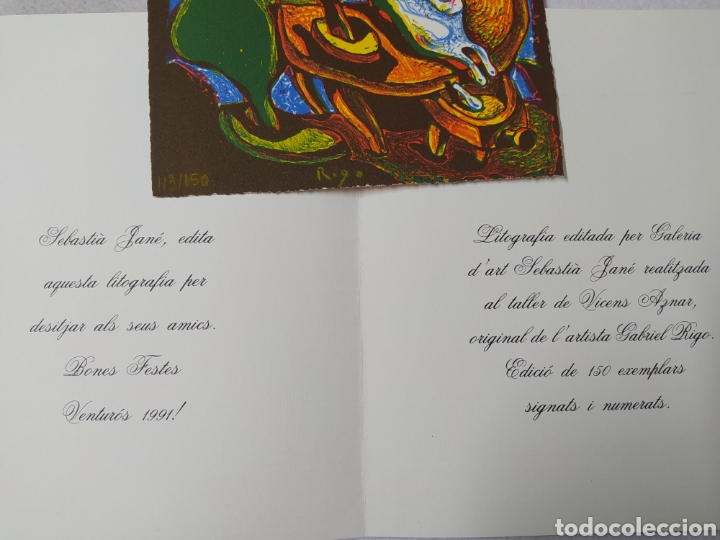 113/150
Rigo
Sebastià Jané, edita
aquesta litografia per
desitjar als seus amics.
Bones Festes
Venturós 1991!
Litografia editada per Galeria
d'art Sebastià Jané realitzada
al taller de Vicens Aznar,
original de l'artista Gabriel Rigo.
Edició de 150 exemplars
signats i numerats.
todocoleccion